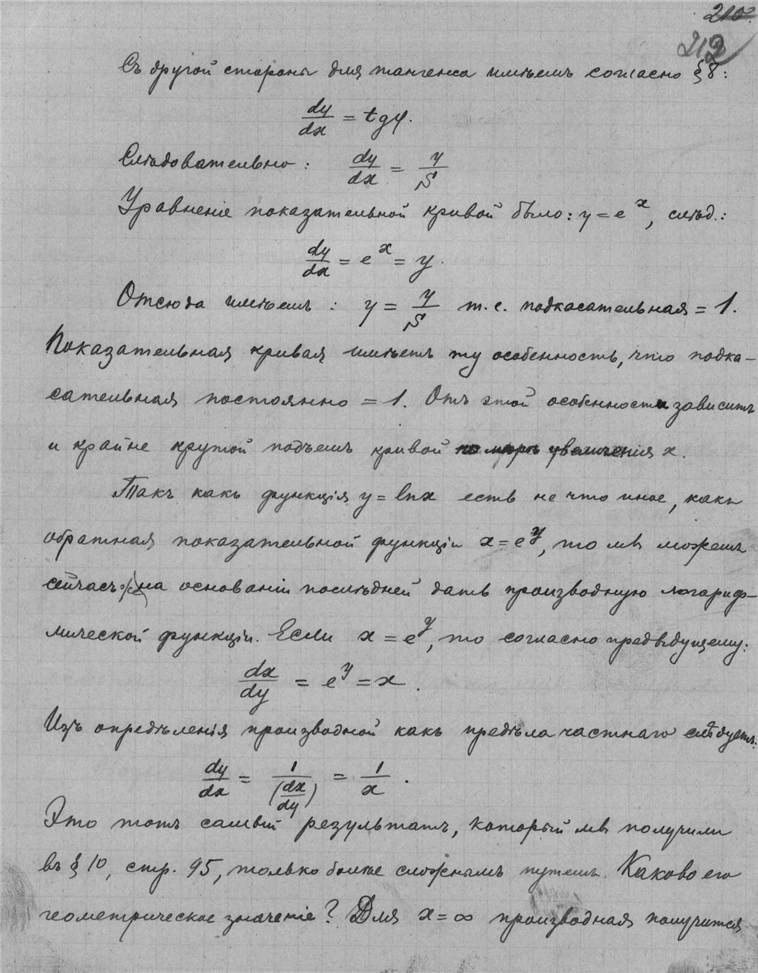 210
212
Съ другой стороны для тангенса имѣемъ согласно § 8:
dy/dx = tgφ.
Слѣдовательно: dy/dx = y/S
Уравненіе показательной кривой было: y = e^x, слѣд.:
dy/dx = e^x = y.
Отсюда имѣемъ: y = y/S т.е. подкасательная = 1.
Показательная кривая имѣетъ ту особенность, что подка-
сательная постоянно = 1. Отъ этой особенности зависитъ
и крайне крутой подъемъ кривой по мѣрѣ увеличенія x.
Такъ какъ функція y = lnx есть не что иное, какъ
обратная показательной функціи x = e^y, то мы можемъ
сейчасъ же на основаніи послѣдней дать производную логариф-
мической функціи. Если x = e^y, то согласно предыдущему:
dx/dy = e^y = x.
Изъ опредѣленія производной какъ предѣла частнаго слѣдуетъ:
dy/dx = 1/(dx/dy) = 1/x.
Это тотъ самый результатъ, который мы получили
въ § 10, стр. 95, только болѣе сложнымъ путемъ. Каково его
геометрическое значеніе? Для x = ∞ производная получится